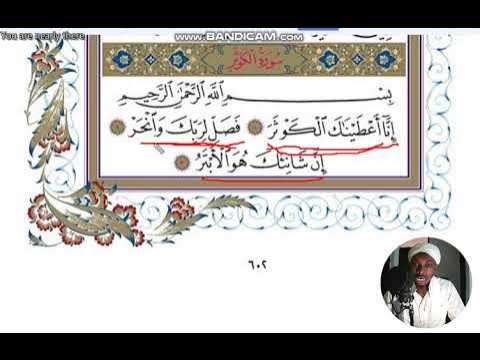 You are nearly there
www.BANDICAM.com
سُورَةُ الكَوْثَرِ
بِسْمِ اللَّهِ الرَّحْمَٰنِ الرَّحِيمِ
إِنَّا أَعْطَيْنَاكَ الْكَوْثَرَ ۝ فَصَلِّ لِرَبِّكَ وَانْحَرْ ۝
إِنَّ شَانِئَكَ هُوَ الْأَبْتَرُ ۝
٦٠٢